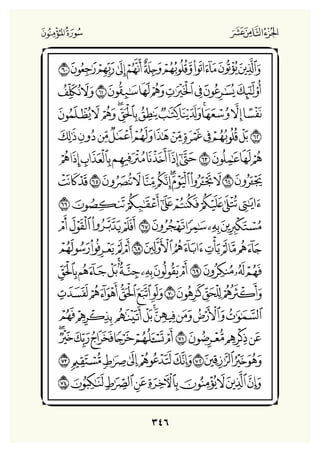 الجزء الثامن عشر سورة المؤمنون
وَالَّذِينَ يُؤْتُونَ مَا آتَوا وَّقُلُوبُهُمْ وَجِلَةٌ أَنَّهُمْ إِلَىٰ رَبِّهِمْ رَاجِعُونَ ٦٠
أُولَٰئِكَ يُسَارِعُونَ فِي الْخَيْرَاتِ وَهُمْ لَهَا سَابِقُونَ ٦١ وَلَا نُكَلِّفُ
نَفْسًا إِلَّا وُسْعَهَا وَلَدَيْنَا كِتَابٌ يَنطِقُ بِالْحَقِّ وَهُمْ لَا يُظْلَمُونَ
٦٢ بَلْ قُلُوبُهُمْ فِي غَمْرَةٍ مِّنْ هَٰذَا وَلَهُمْ أَعْمَالٌ مِّن دُونِ ذَٰلِكَ
هُمْ لَهَا عَامِلُونَ ٦٣ حَتَّىٰ إِذَا أَخَذْنَا مُتْرَفِيهِم بِالْعَذَابِ إِذَا هُمْ
يَجْأَرُونَ ٦٤ لَا تَجْأَرُوا الْيَوْمَ إِنَّكُم مِّنَّا لَا تُنصَرُونَ ٦٥ قَدْ كَانَتْ
آيَاتِي تُتْلَىٰ عَلَيْكُمْ فَكُنتُمْ عَلَىٰ أَعْقَابِكُمْ تَنكِصُونَ ٦٦
مُسْتَكْبِرِينَ بِهِ سَامِرًا تَهْجُرُونَ ٦٧ أَفَلَمْ يَدَّبَّرُوا الْقَوْلَ أَمْ
جَاءَهُم مَّا لَمْ يَأْتِ آبَاءَهُمُ الْأَوَّلِينَ ٦٨ أَمْ لَمْ يَعْرِفُوا رَسُولَهُمْ
فَهُمْ لَهُ مُنكِرُونَ ٦٩ أَمْ يَقُولُونَ بِهِ جِنَّةٌ بَلْ جَاءَهُم بِالْحَقِّ
وَأَكْثَرُهُمْ لِلْحَقِّ كَارِهُونَ ٧٠ وَلَوِ اتَّبَعَ الْحَقُّ أَهْوَاءَهُمْ لَفَسَدَتِ
السَّمَاوَاتُ وَالْأَرْضُ وَمَن فِيهِنَّ بَلْ أَتَيْنَاهُم بِذِكْرِهِمْ فَهُمْ
عَن ذِكْرِهِم مُّعْرِضُونَ ٧١ أَمْ تَسْأَلُهُمْ خَرْجًا فَخَرَاجُ رَبِّكَ خَيْرٌ
وَهُوَ خَيْرُ الرَّازِقِينَ ٧٢ وَإِنَّكَ لَتَدْعُوهُمْ إِلَىٰ صِرَاطٍ مُّسْتَقِيمٍ ٧٣
وَإِنَّ الَّذِينَ لَا يُؤْمِنُونَ بِالْآخِرَةِ عَنِ الصِّرَاطِ لَنَاكِبُونَ ٧٤
٣٤٦